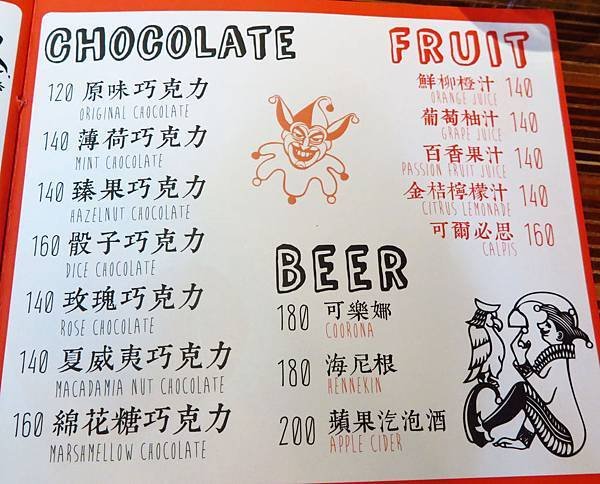 CHOCOLATE
120 原味巧克力
ORIGINAL CHOCOLATE
140 薄荷巧克力
MINT CHOCOLATE
140 臻果巧克力
HAZELNUT CHOCOLATE
160 骰子巧克力
DICE CHOCOLATE
140 玫瑰巧克力
ROSE CHOCOLATE
140 夏威夷巧克力
MACADAMIA NUT CHOCOLATE
160 綿花糖巧克力
MARSHMELLOW CHOCOLATE
FRUIT
鮮柳橙汁 140
ORANGE JUICE
葡萄柚汁 140
GRAPE JUICE
百香果汁 140
PASSION FRUIT JUICE
金桔檸檬汁 140
CITRUS LEMONADE
可爾必思 160
CALPIS
BEER
180 可樂娜
COORONA
180 海尼根
HENNEKIN
200 蘋果汽泡酒
APPLE CIDER